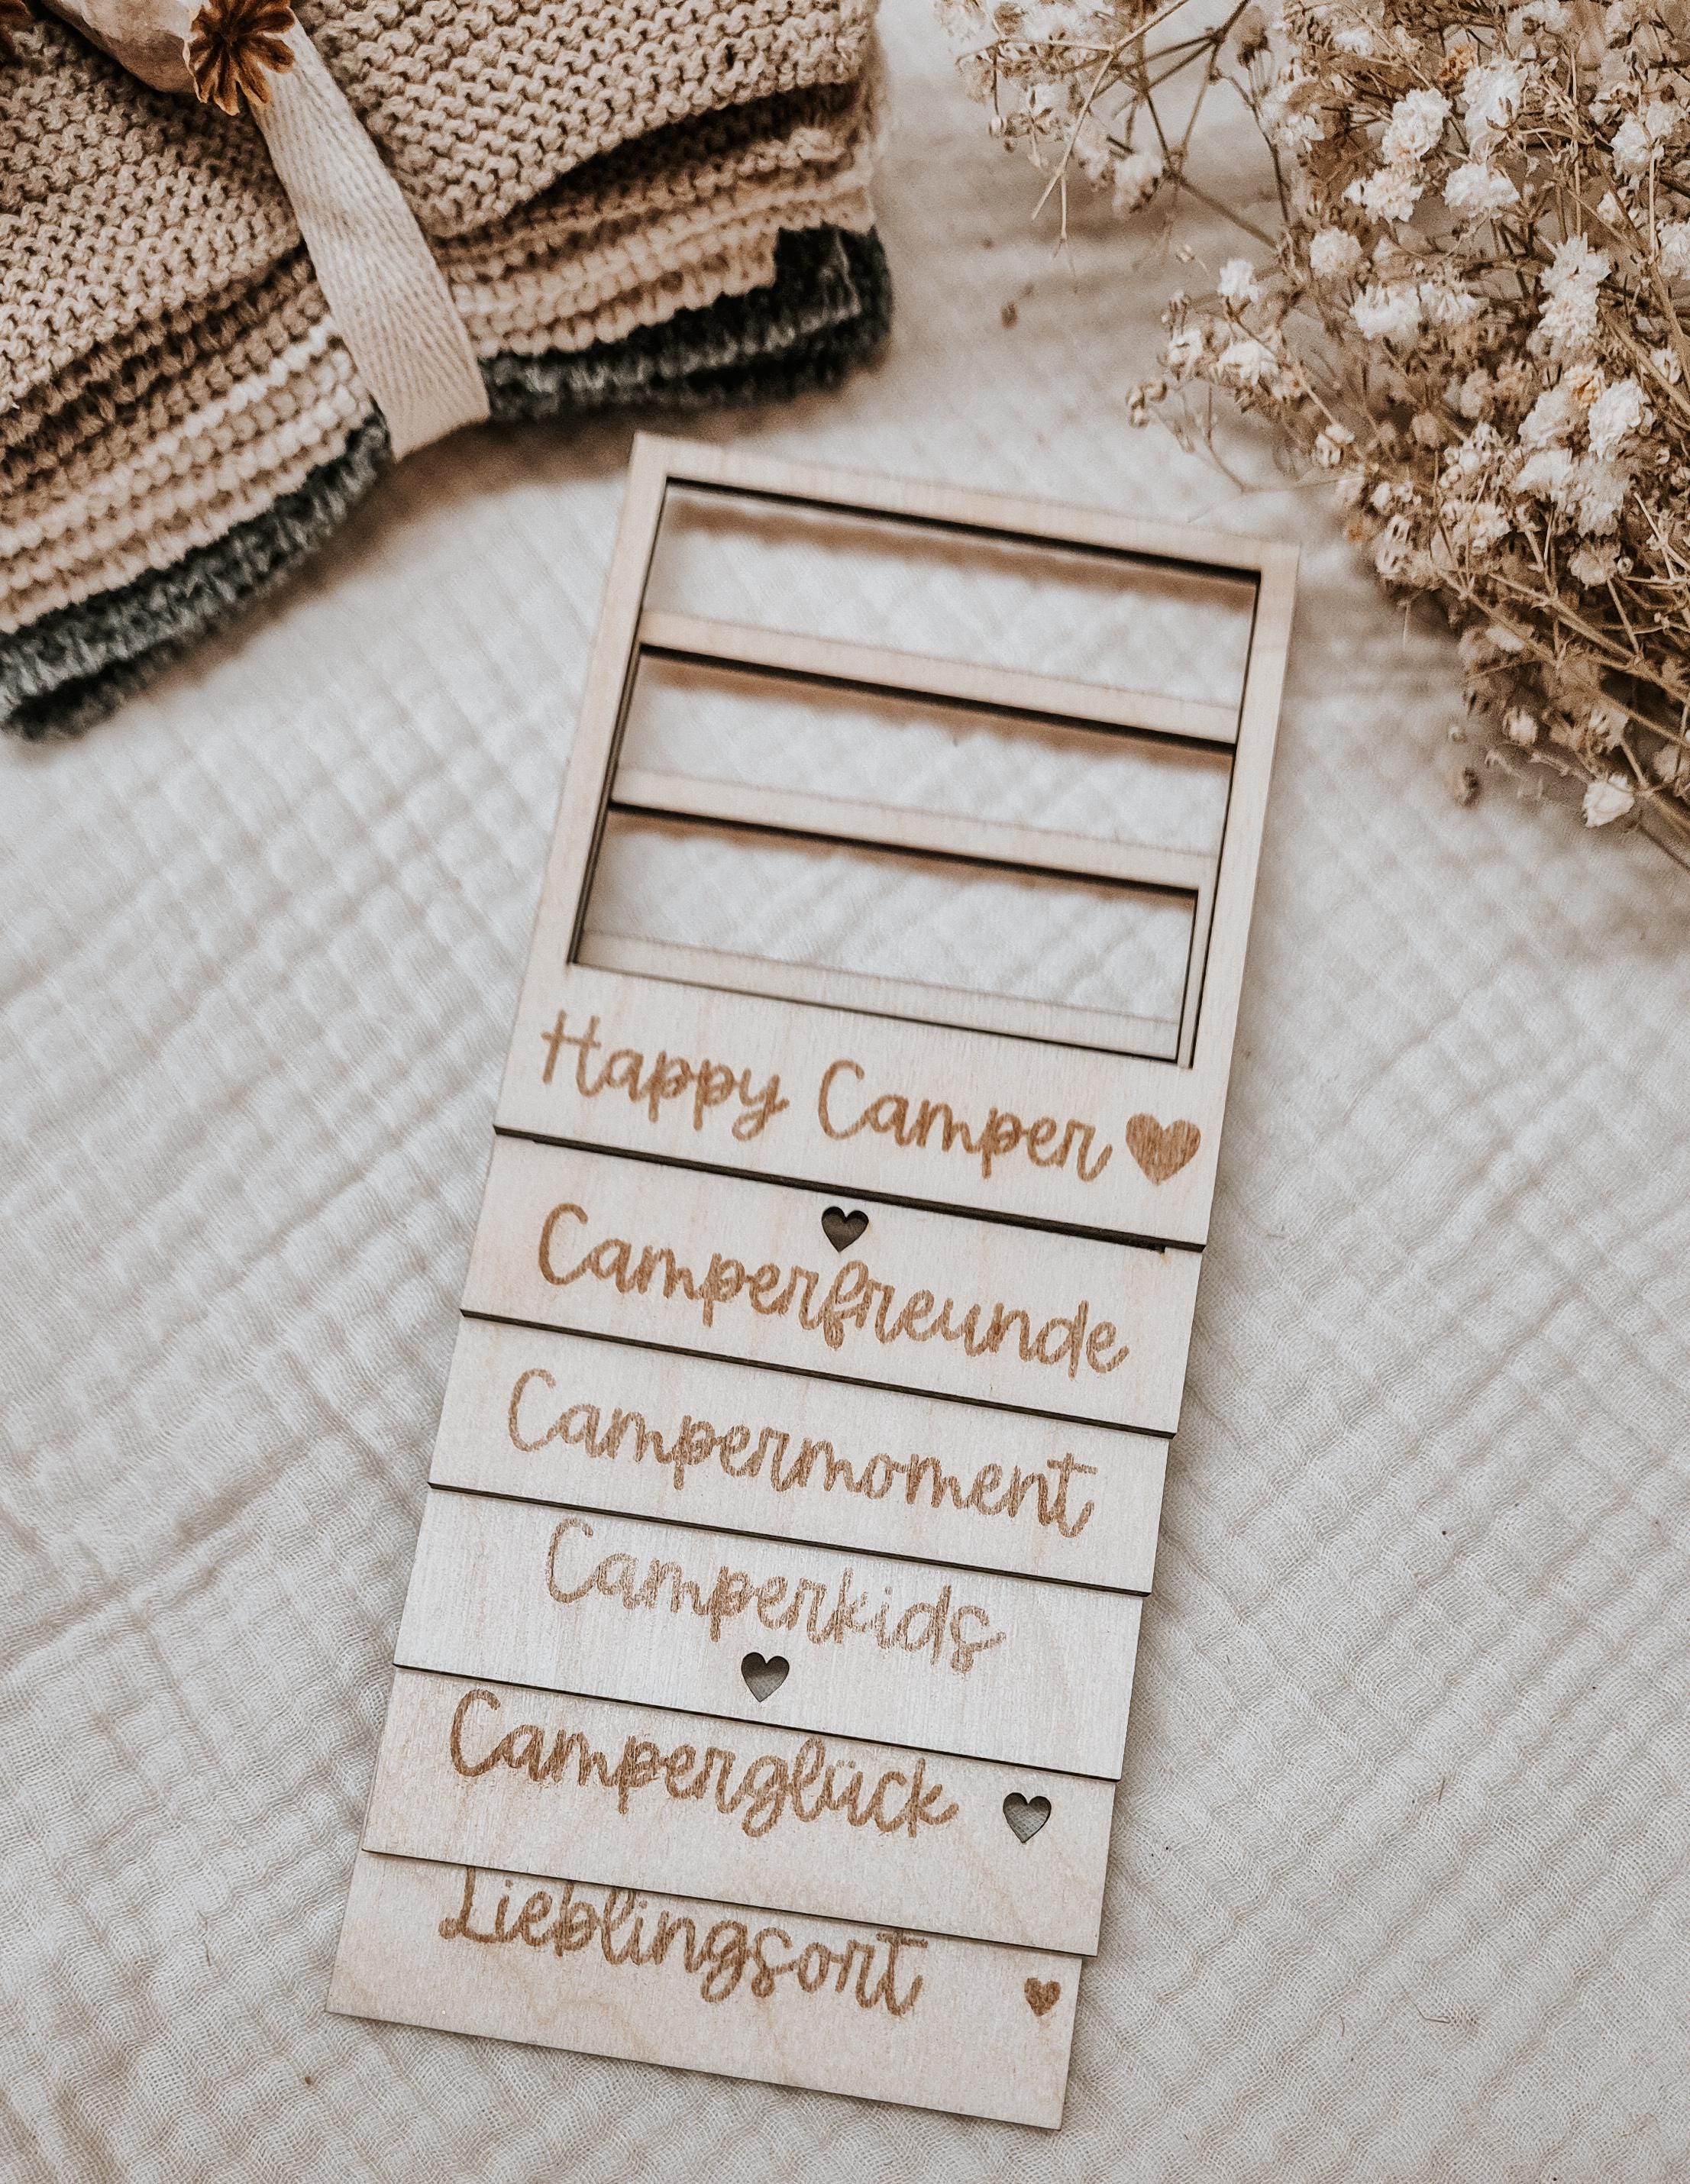 Happy Camper
Camperfreunde
Campermoment
Camperkids
Camperglück
Lieblingsort